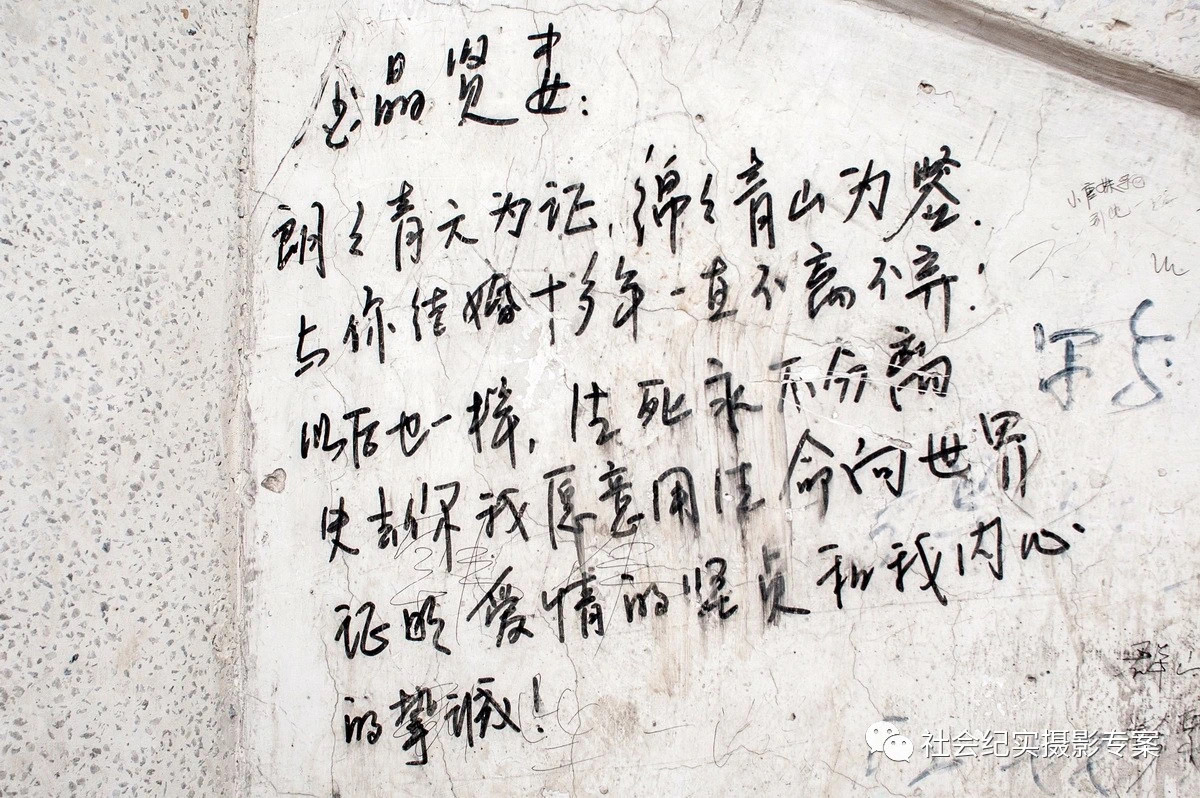 玉晶贤妻:
朗々青天为证,绵々青山为鉴.
与你结婚十多年一直不离不弃!
以后也一样,生死永不分离
失去你我愿意用生命向世界
证明爱情的坚贞和我内心
的挚诚!
社会纪实摄影专案